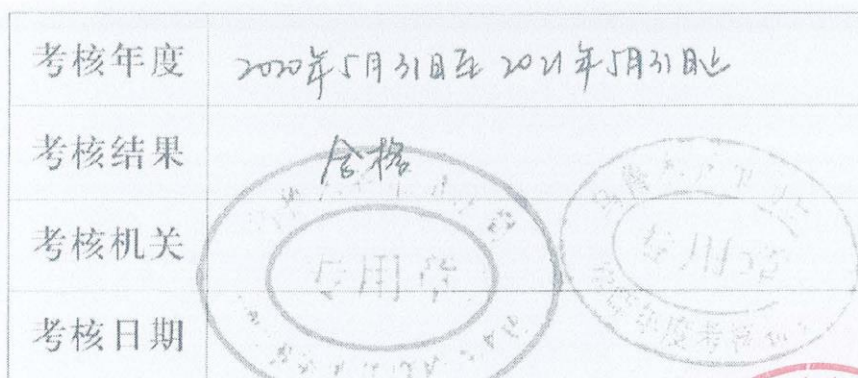 考核年度 2020年5月31日至2021年5月31日止
考核结果 合格
考核机关
考核日期
专用章
专用章
年度考核